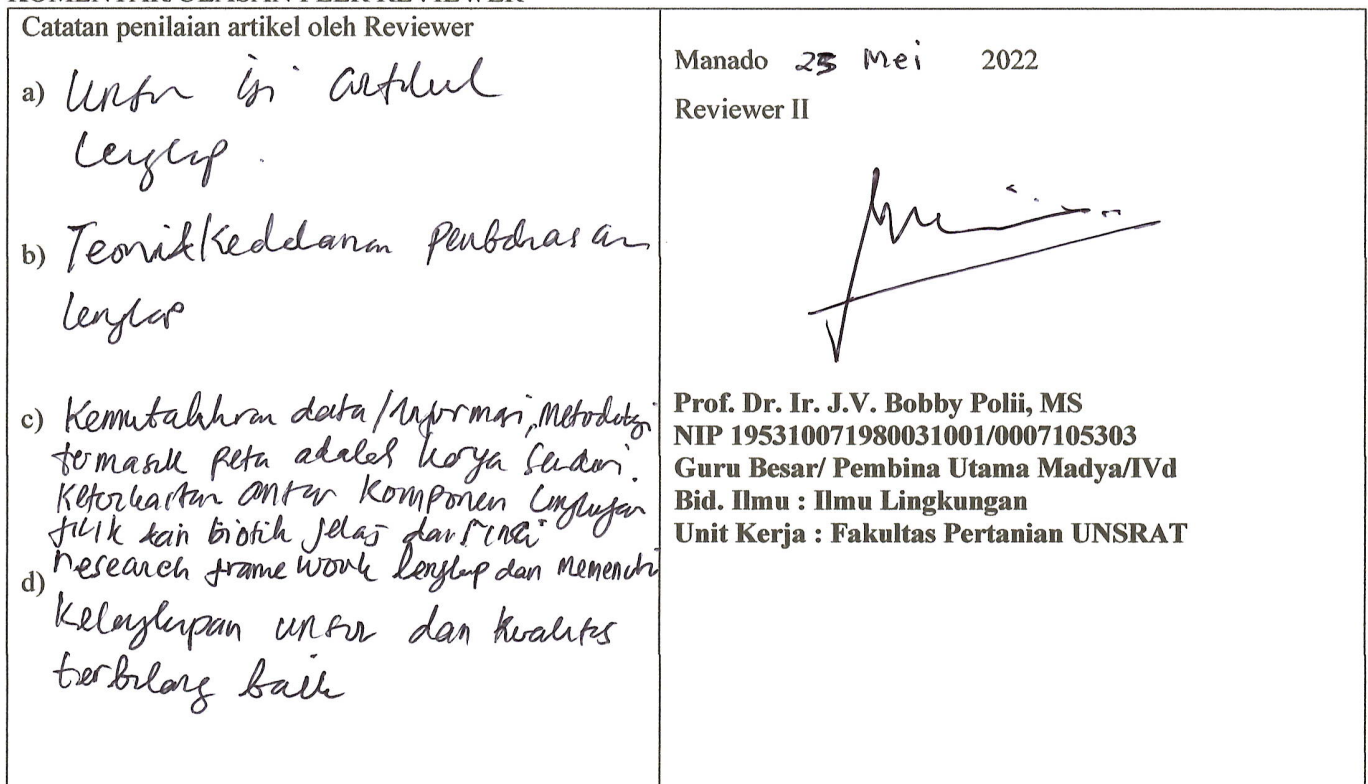 KOMENTAR/ULASAN PEER REVIEWER
Catatan penilaian artikel oleh Reviewer
a) Unsur isi artikel
lengkap.
b) Teorits/Kedalaman pembahasan
lengkap
c) Kemutakhiran data/informasi, metodologi
termasuk peta adalah karya sendiri.
Keterkaitan antar komponen lingkungan
fisik dan biotik jelas dan rinci
research frame work lengkap dan memenuhi
d) Kelengkapan unsur dan kualitas
terbilang baik
Manado 25 Mei 2022
Reviewer II
Prof. Dr. Ir. J.V. Bobby Polii, MS
NIP 195310071980031001/0007105303
Guru Besar/ Pembina Utama Madya/IVd
Bid. Ilmu : Ilmu Lingkungan
Unit Kerja : Fakultas Pertanian UNSRAT